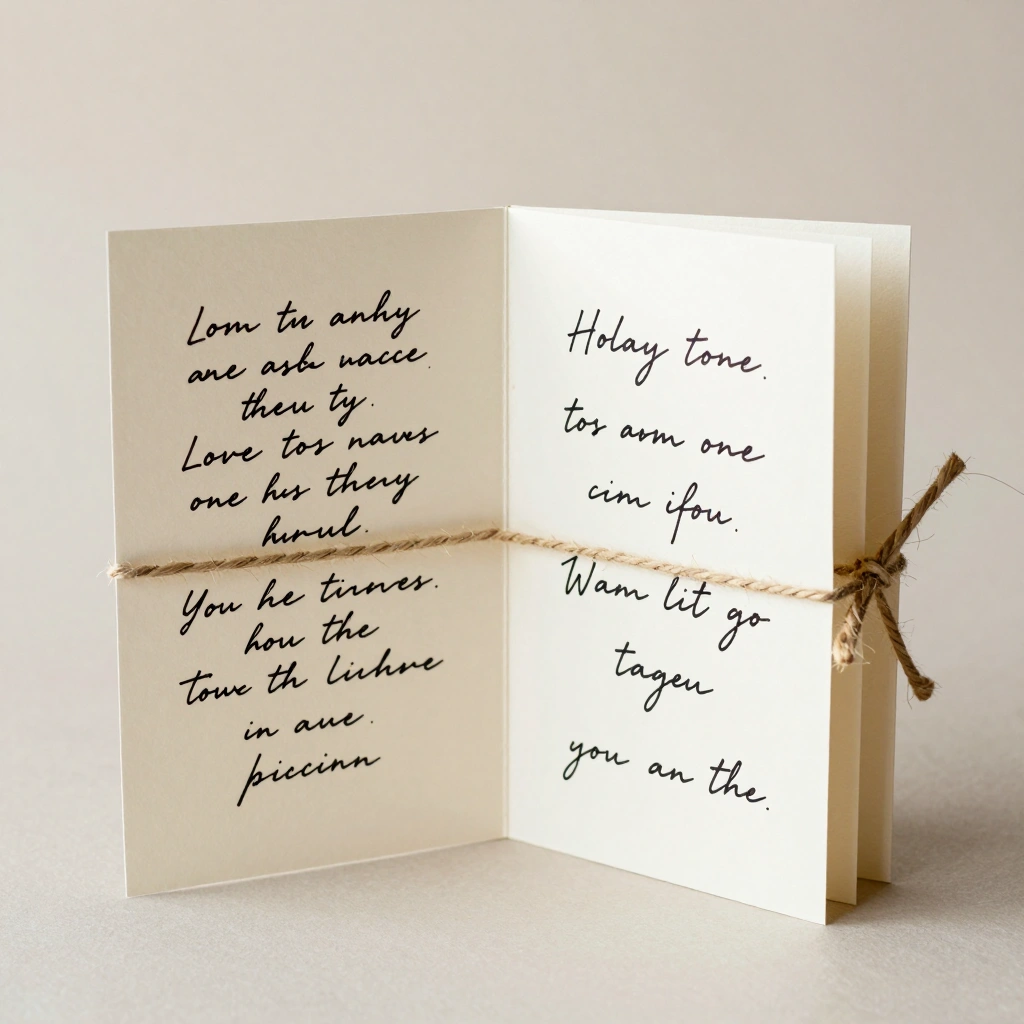 Lom tu anhy
ane ask uacce.
theu ty.
Love tos naves
one hus theuy
hurul.
You he tirnes.
hou the
towe th lichne
in aue.
piccinn
Holay tone.
tos aom one
cim ifou.
Wam lit go
tageu
you an the.